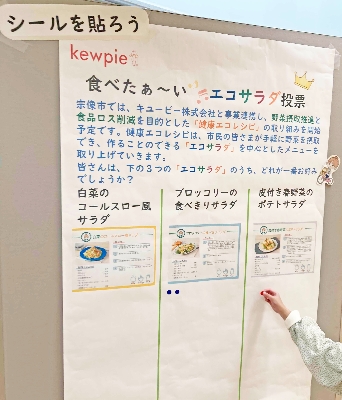 シールを貼ろう
kewpie
食べたぁ～い エコサラダ投票
宗像市では、キユーピー株式会社と事業連携し、野菜摂取推進と
食品ロス削減を目的とした「健康エコレシピ」の取り組みを開始
予定です。健康エコレシピは、市民の皆さまが手軽に野菜を摂取
でき、作ることのできる「エコサラダ」を中心としたメニューを
取り上げていきます。
皆さんは、下の３つの「エコサラダ」のうち、どれが一番お好み
でしょうか？
白菜の
コールスロー風
サラダ
ブロッコリーの
食べきりサラダ
皮付き春野菜の
ポテトサラダ